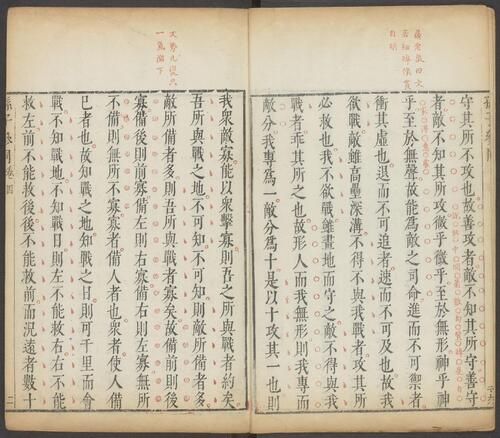 守其所不攻也故善攻者敵不知其所守善守
者敵不知其所攻微乎微乎至於無形神乎神
乎至於無聲故能爲敵之司命進而不可禦者
衝其虛也退而不可追者速而不可及也故我
欲戰敵雖高壘深溝不得不與我戰者攻其所
必救也我不欲戰雖畫地而守之敵不得與我
戰者乖其所之也故形人而我無形則我專而
敵分我專爲一敵分爲十是以十攻其一也則
一氣
我衆敵寡能以衆擊寡則吾之所與戰者約矣
吾所與戰之地不可知不可知則敵所備者多
敵所備者多則吾所與戰者寡矣故備前則後
寡備後則前寡備左則右寡備右則左寡無所
不備則無所不寡寡者備人者也衆者使人備
已者也故知戰之地知戰之日則可千里而會
戰不知戰地不知戰日則左不能救右右不能
救左前不能救後後不能救前而況遠者數十
孫子參同卷四 二